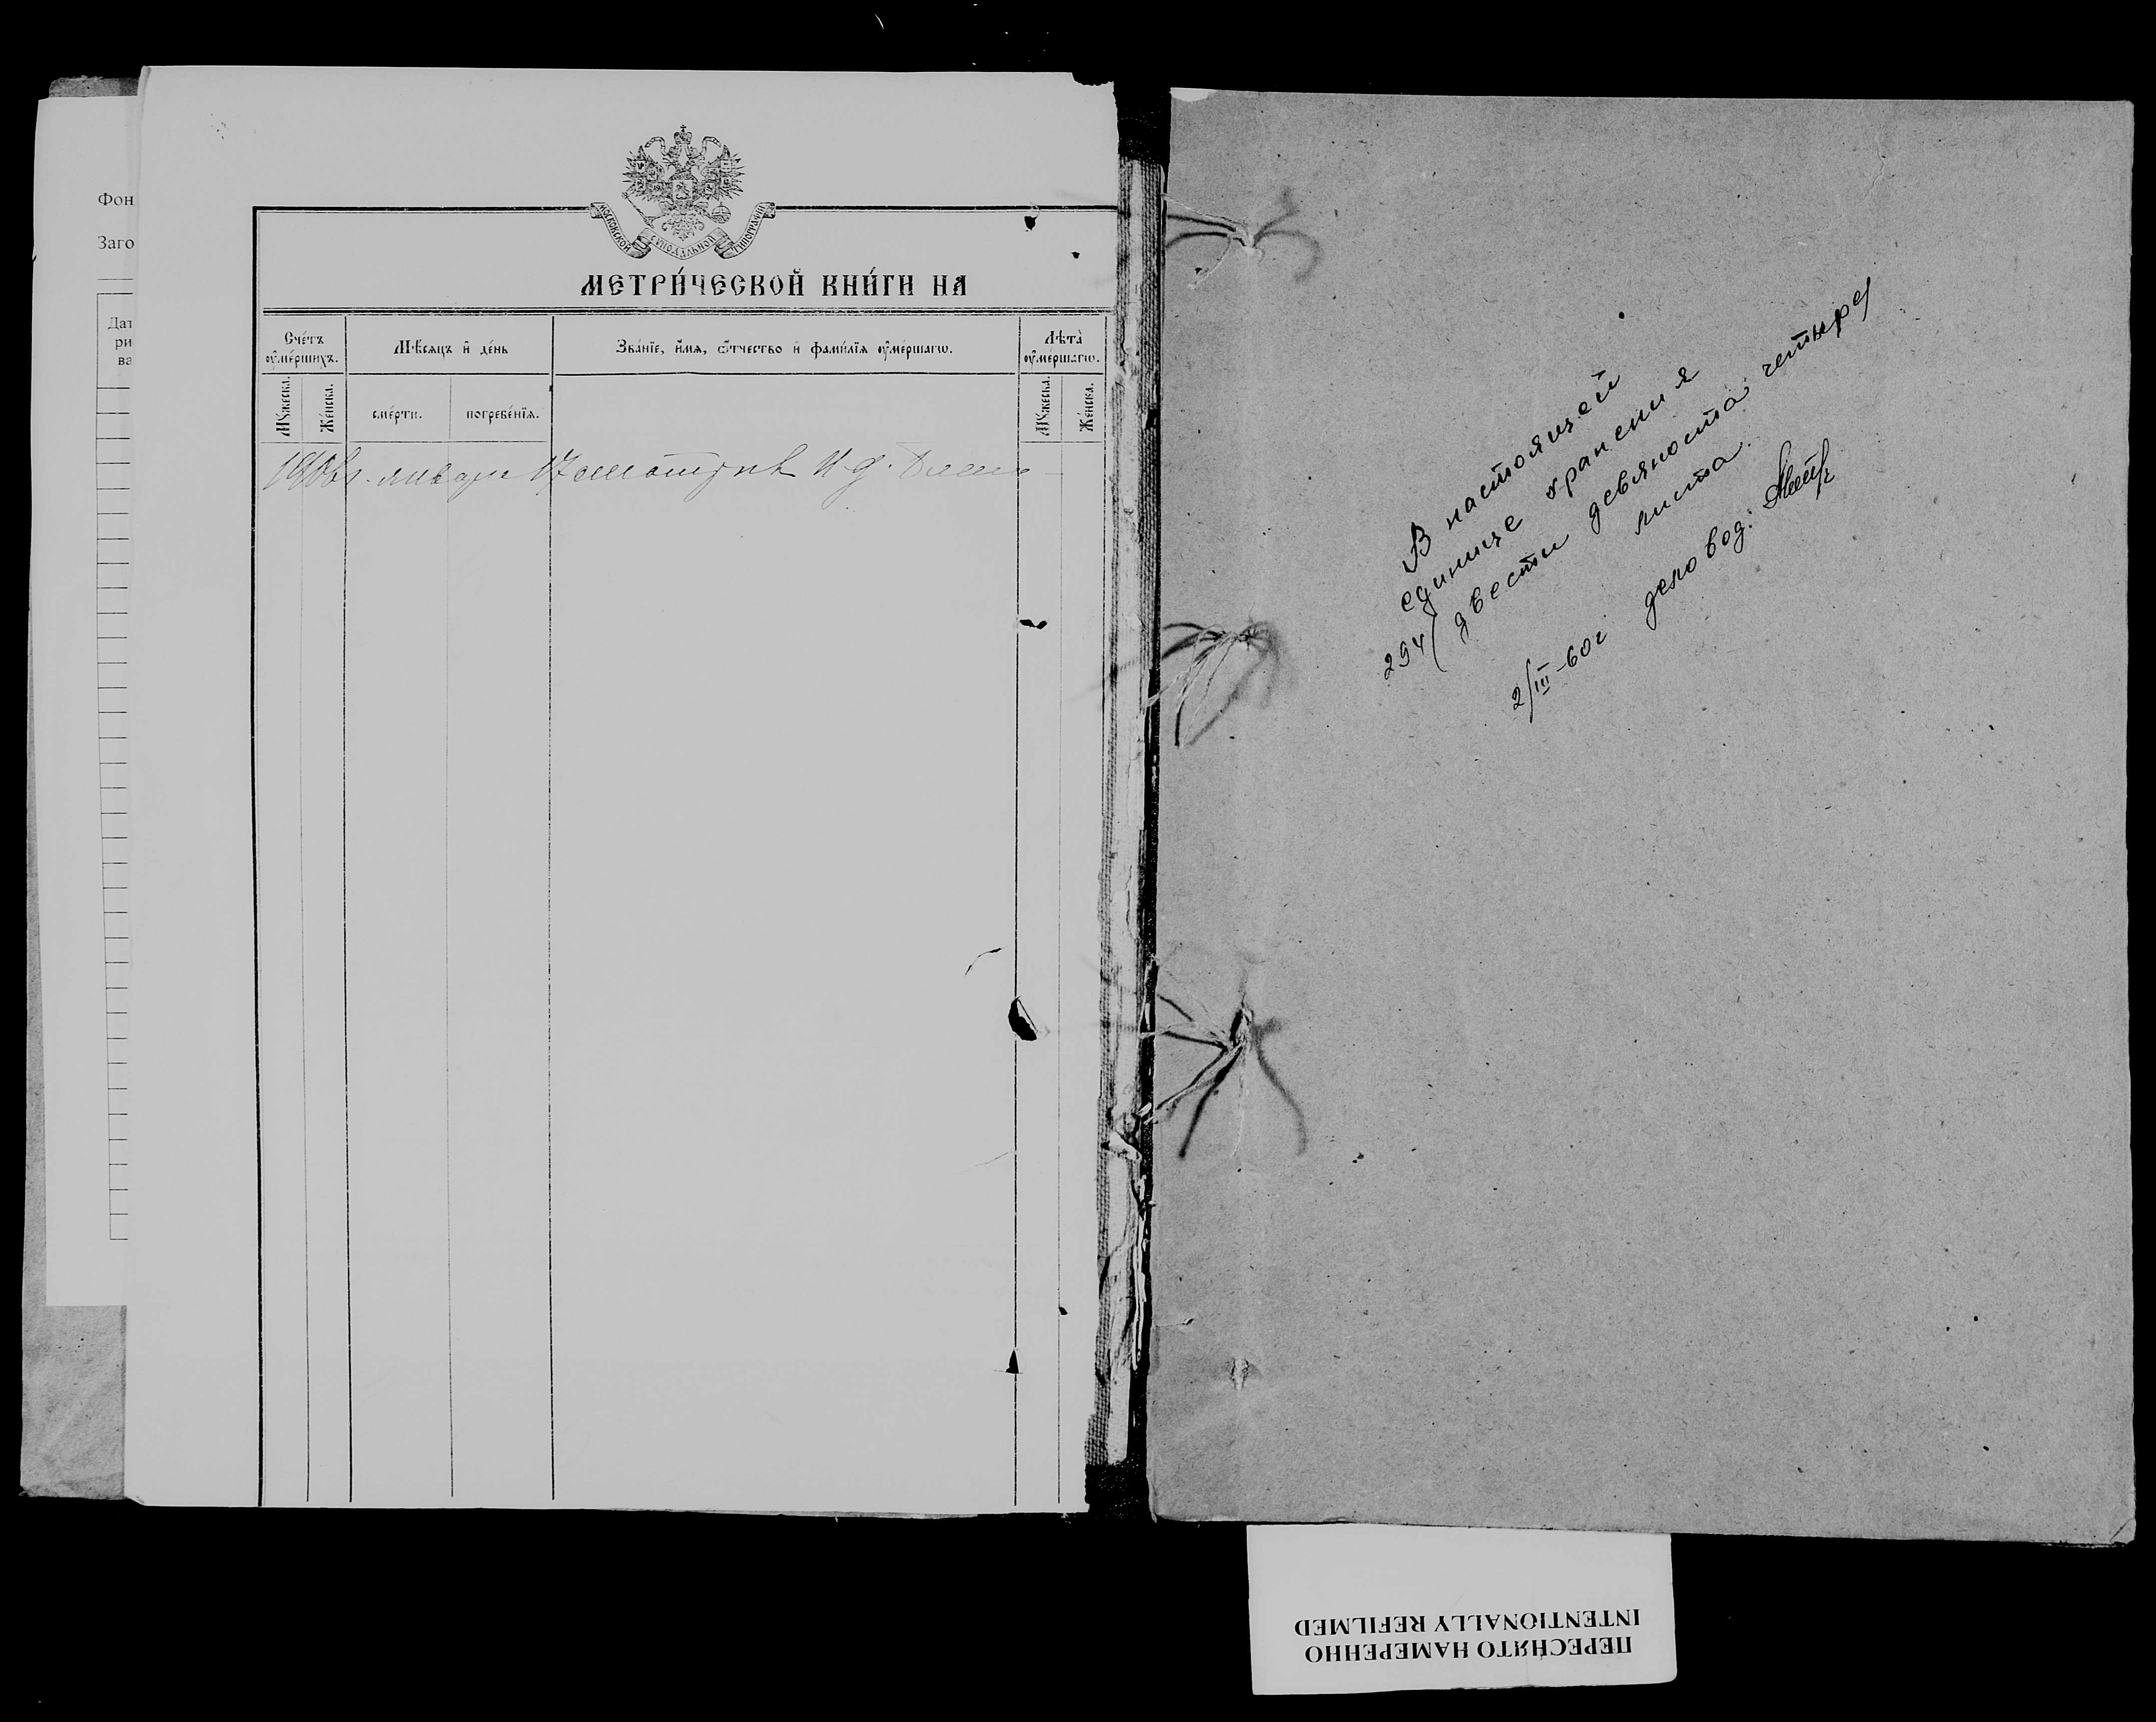 Фон
Заго
Дат
ри
ва
МОСКОВСКОЙ СУНОДАЛЬНОЙ ТИПОГРАФІИ
МЕТРИ́ЧЕСКОЙ КНИ́ГИ НА
Сче́тъ ᲂу҆ме́ршихъ.
Мѣ́сяцъ и҆ де́нь
Зва́нїе, и҆́мя, ѻ҆́тчество и҆ фами́лїя ᲂу҆ме́ршагѡ.
Лѣ́та ᲂу҆ме́ршагѡ.
Мꙋ́жеска.
Же́нска.
сме́рти.
погребе́нїя.
Мꙋ́жеска.
Же́нска.
января 17
В настоящей
единице хранения
294 (двести девяносто четыре)
листа.
2/III-60г деловод.
ПЕРЕСНЯТО НАМЕРЕННО
INTENTIONALLY REFILMED